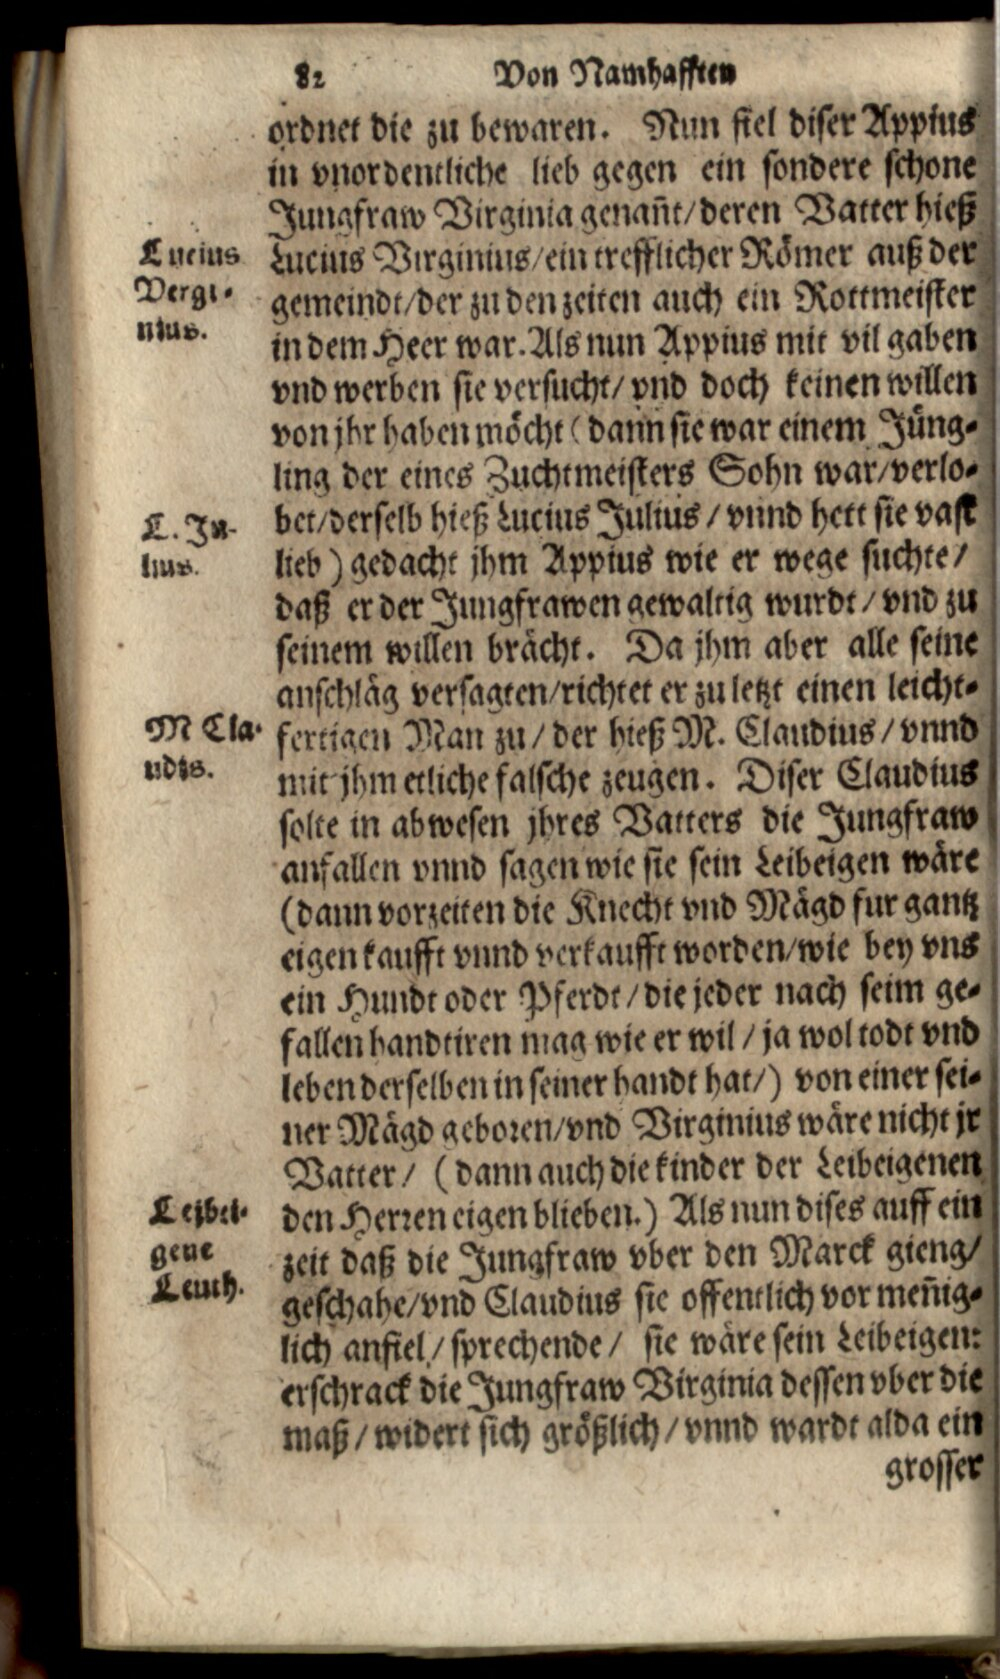 82 Von Namhafften
ordnet die zu bewaren. Nun fiel diser Appius
in vnordentliche lieb gegen ein sondere schone
Jungfraw Virginia genañt/deren Vatter hieß
Lucius Virginius/ein trefflicher Römer auß der
gemeindt/der zu den zeiten auch ein Rottmeister
in dem Heer war. Als nun Appius mit vil gaben
vnd werben sie versucht/ vnd doch keinen willen
von jhr haben möcht (dann sie war einem Jüng-
ling der eines Zuchtmeisters Sohn war/verlo-
bet/derselb hieß Lucius Julius / vnnd hett sie vast
lieb) gedacht jhm Appius wie er wege suchte/
daß er der Jungfrawen gewaltig wurdt/ vnd zu
seinem willen brächt. Da jhm aber alle seine
anschläg versagten/richtet er zu letzt einen leicht-
fertigen Man zu / der hieß M. Claudius / vnnd
mit jhm etliche falsche zeugen. Diser Claudius
solte in abwesen jhres Vatters die Jungfraw
anfallen vnnd sagen wie sie sein Leibeigen wäre
(dann vorzeiten die Knecht vnd Mägd fur gantz
eigen kaufft vnnd verkaufft worden/wie bey vns
ein Hundt oder Pferdt / die jeder nach seim ge-
fallen handtiren mag wie er wil / ja wol todt vnd
leben derselben in seiner handt hat/) von einer sei-
ner Mägd geboren/vnd Virginius wäre nicht jr
Vatter/ (dann auch die kinder der Leibeigenen
den Herren eigen blieben.) Als nun dises auff ein
zeit daß die Jungfraw vber den Marck gieng/
geschahe/vnd Claudius sie offentlich vor meñig-
lich anfiel/ sprechende/ sie wäre sein Leibeigen:
erschrack die Jungfraw Virginia dessen vber die
maß / widert sich größlich / vnnd wardt alda ein
grosser
Lucius
Vergi-
nius.
L. Ju-
lius.
M Cla-
udis.
Leibei-
gene
Leuth.